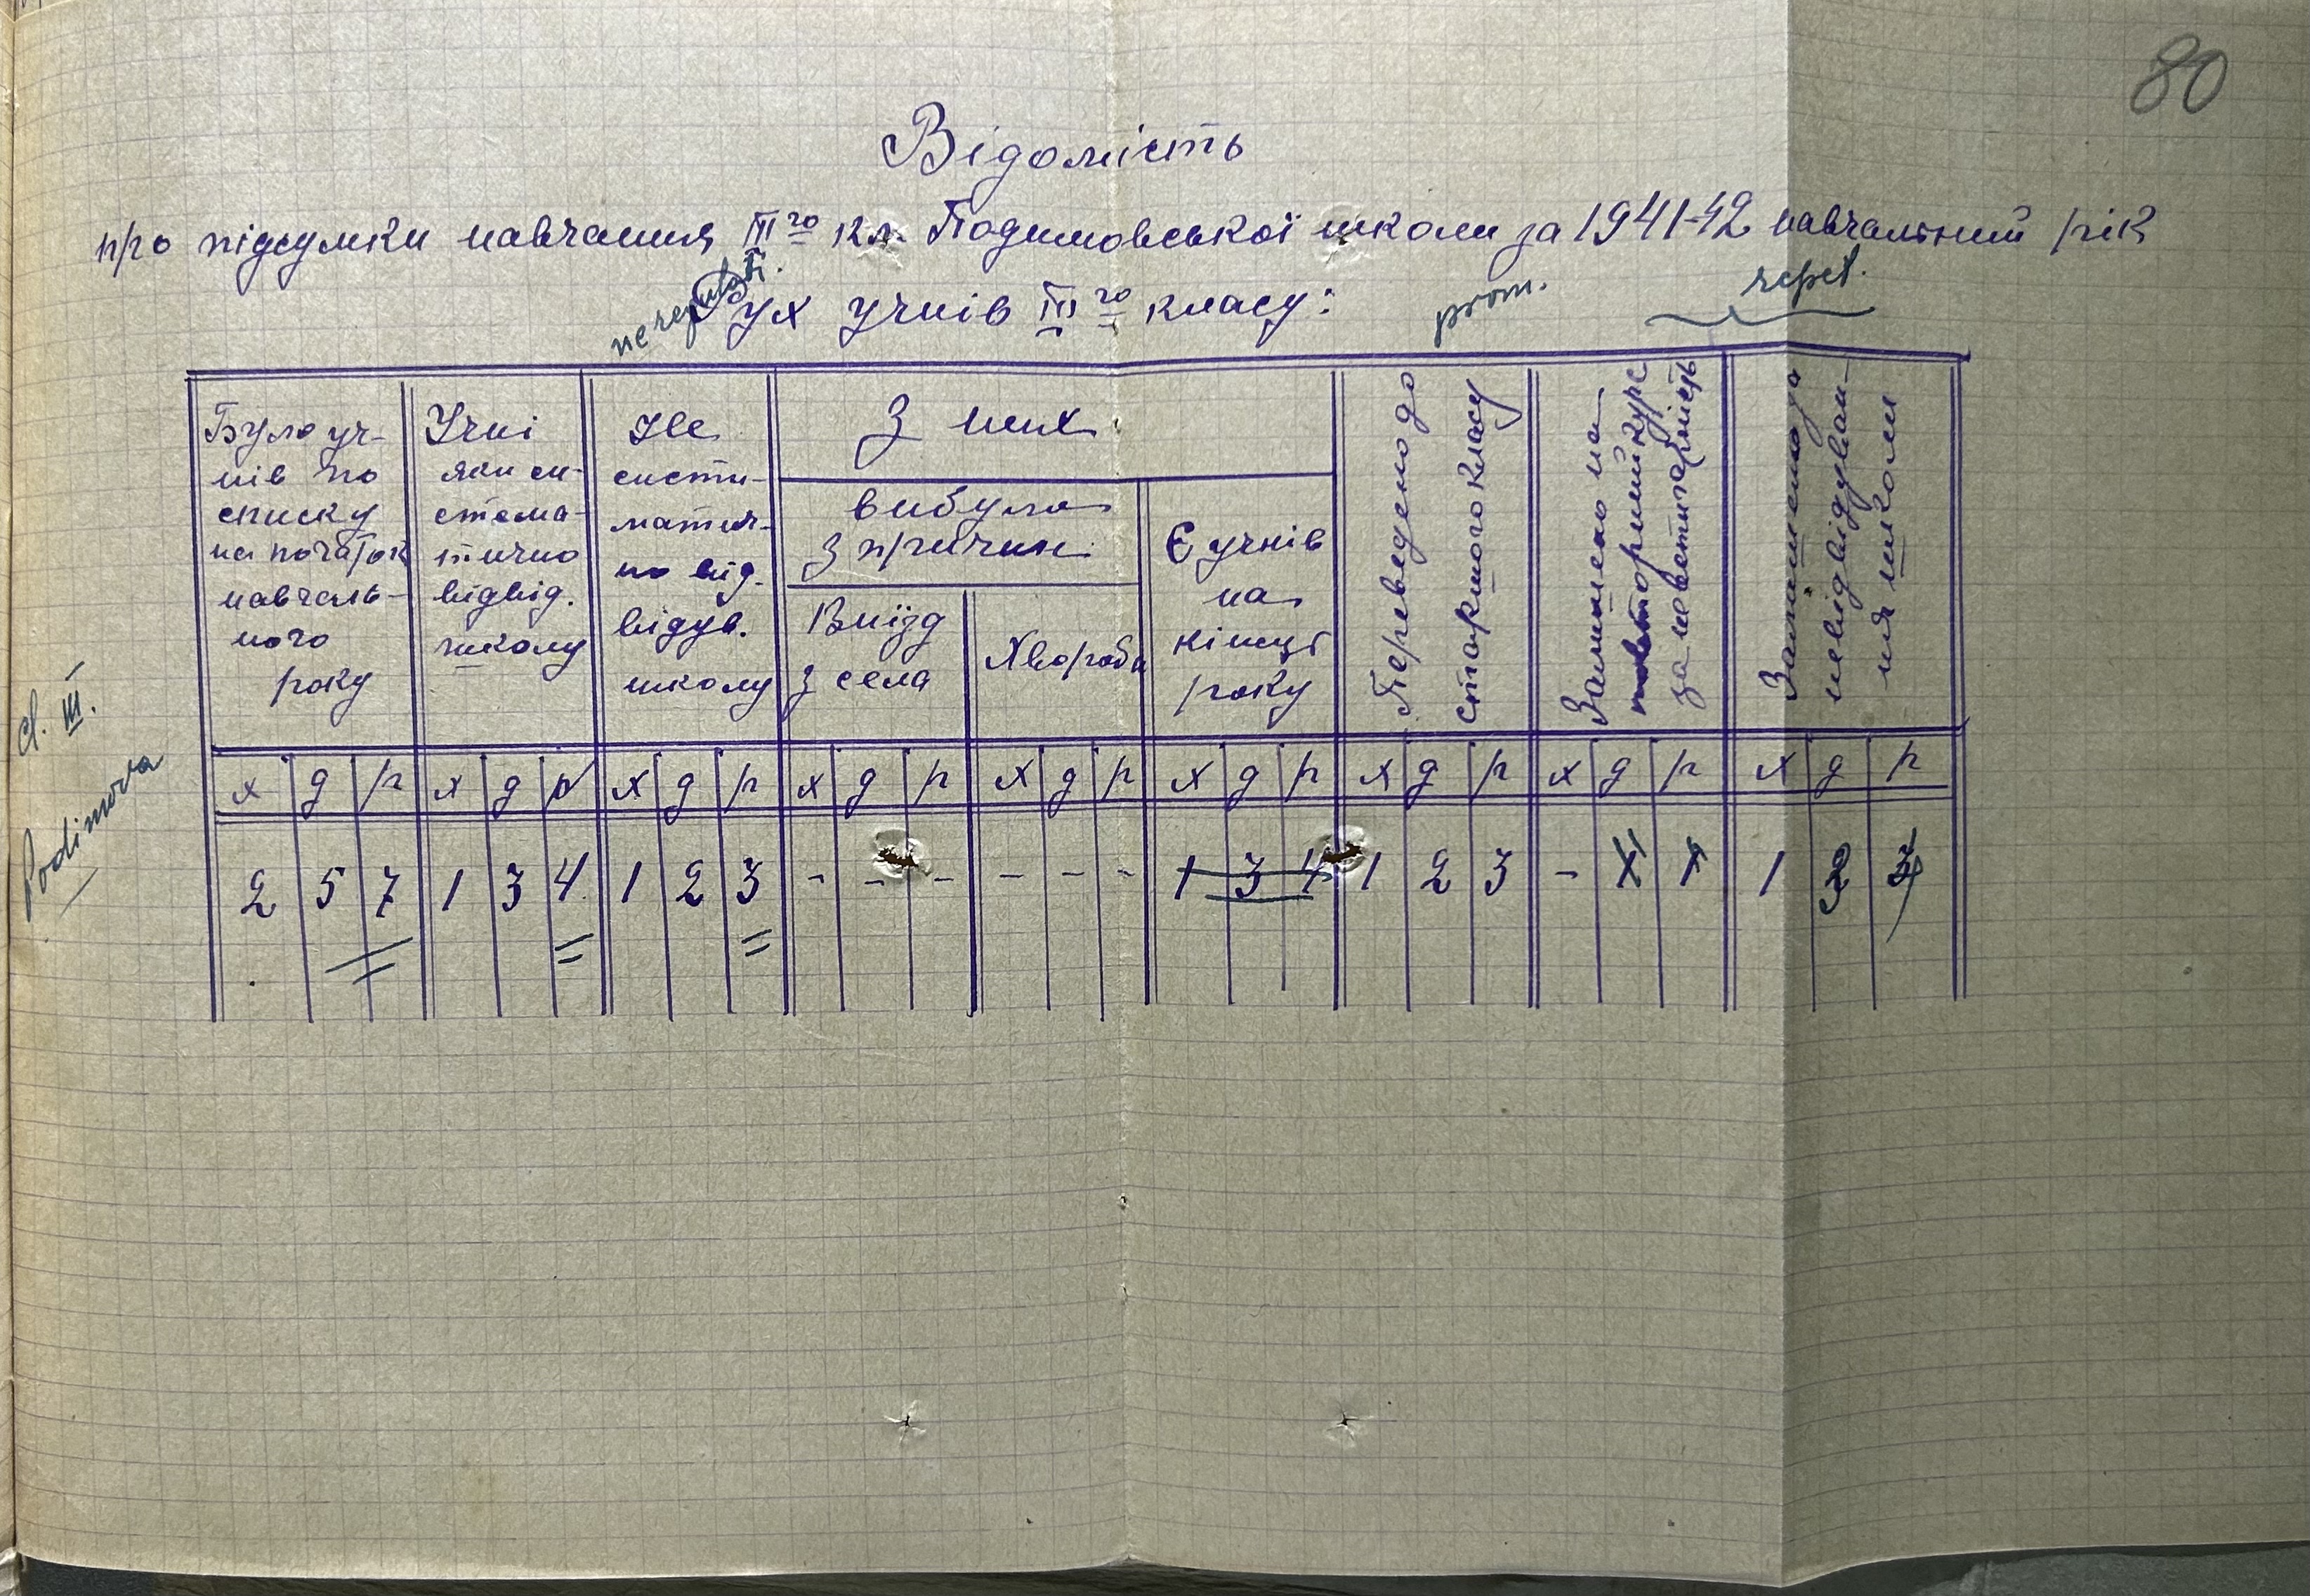 80
Відомість
про підсумки навчання ІІІго кл. Подимовської школи за 1941-42 навчальний рік
Рух учнів ІІІго класу:
prom.
repet.
cl. III.
Podimova
Було уч-
нів по
списку
на початок
навчаль-
ного
року
Учні
яки си-
стема-
тично
відвід.
школу
Не
систи-
матич-
но від-
відув.
школу
З них
вибуло
з причин
Виїзд
з села
Хвороба
Є учнів
на
кінці
року
Переведено до
старшого класу
Залишено на
повторний курс
за невстигаЄність
Залишено за
невідвідуван-
ня школи
х д р х д р х д р х д р х д р х д р х д р х д р х д р
2 5 7 1 3 4 1 2 3 - - - - - - 1 3 4 1 2 3 - 1 1 1